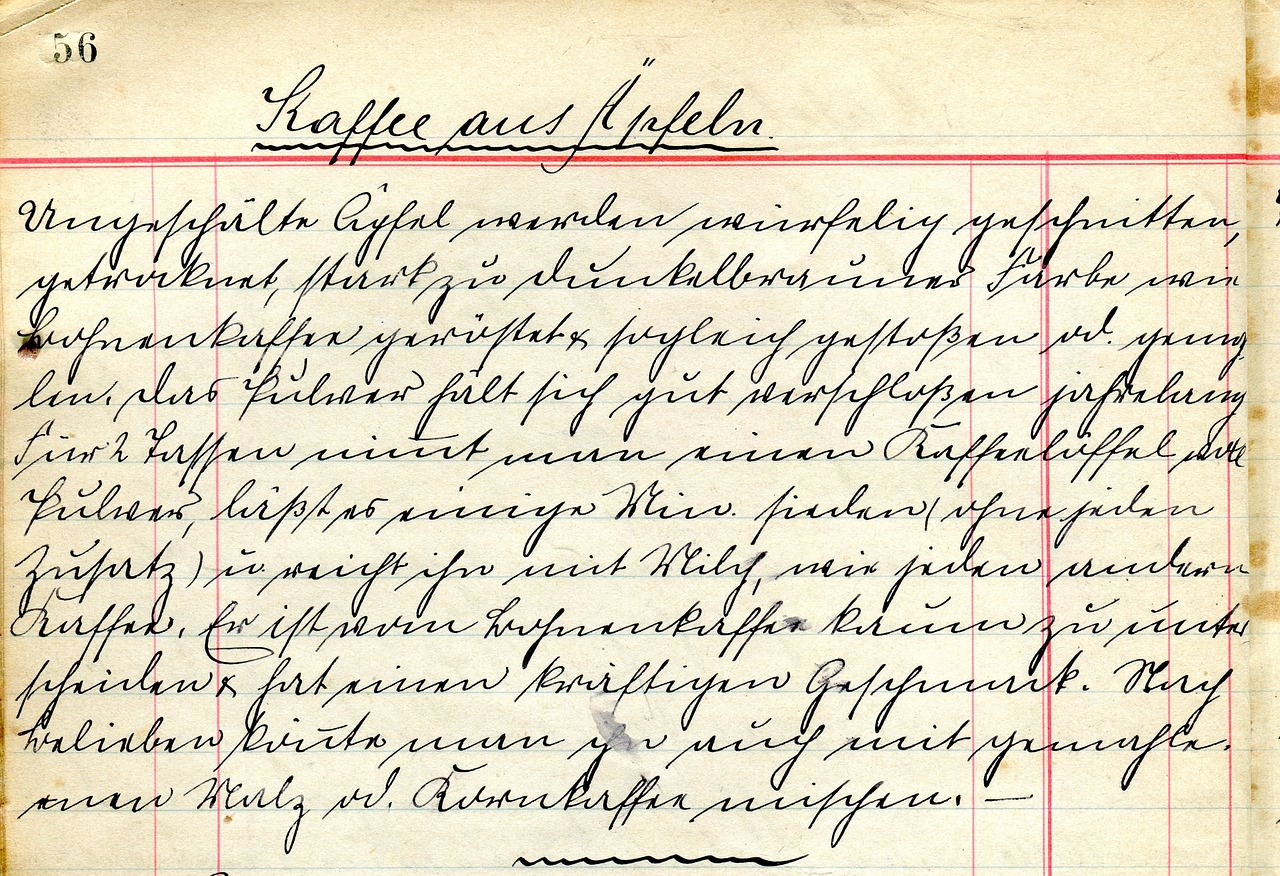 56
Kaffee aus Äpfeln.
Ungeschälte Äpfel werden würfelig geschnitten,
getrocknet, stark zu dunkelbrauner Farbe wie
Bohnenkaffee geröstet & sogleich gestoßen od. gemah
len. Das Pulver hält sich gut verschloßen jahrelang
Für 2 Tassen nim̅t man einen Kaffeelöffel voll
Pulver, läßt es einige Min. sieden (ohne jeden
Zusatz) u. reicht ihn mit Milch, wie jeden andern
Kaffee. Er ist vom Bohnenkaffee kaum zu unter
scheiden & hat einen kräftigen Geschmack. Nach
Belieben kön̅te man ihn auch mit gemahle-
enen Malz od. Kornkaffee mischen. —